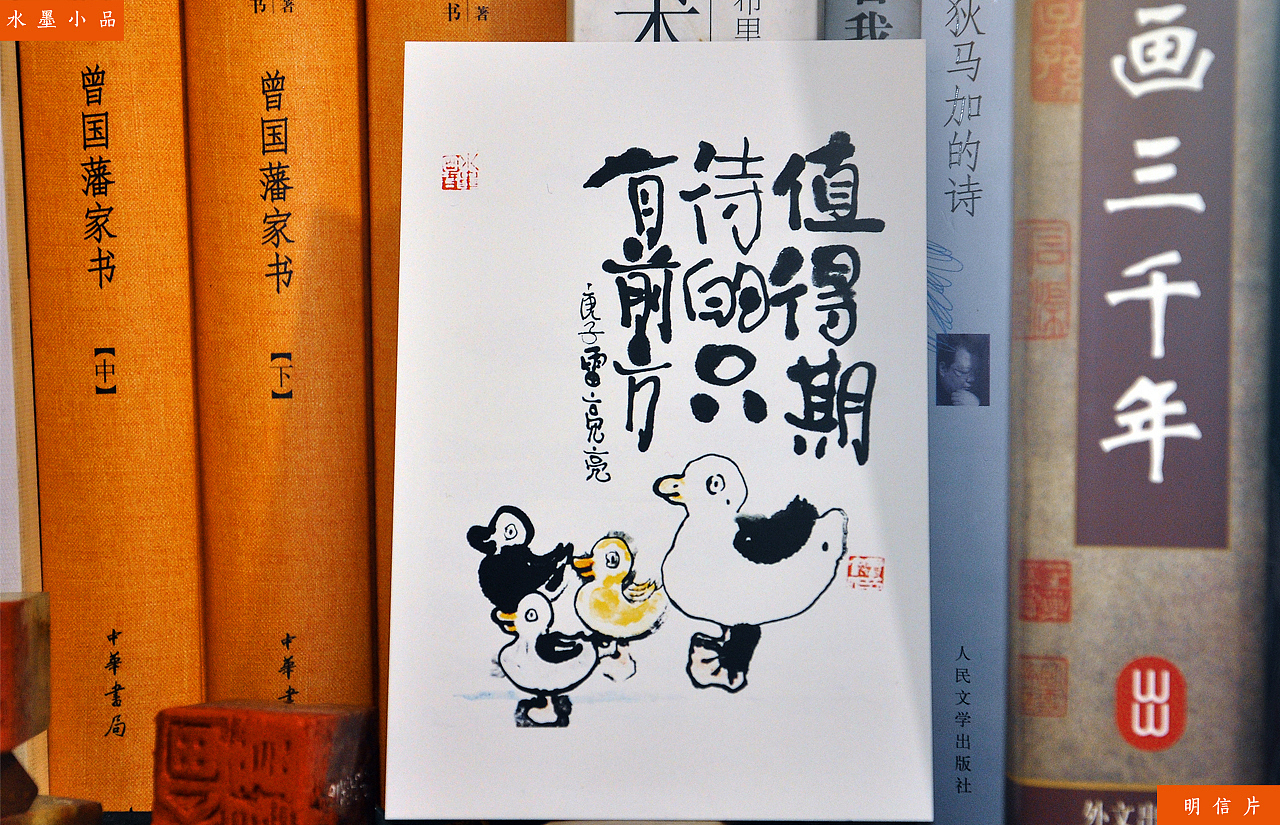 水墨小品
书 著
曾国藩家书
【中】
中华书局
书 著
曾国藩家书
【下】
中华书
值得期
待的只
有前方
庚子雷亮亮
术
布里
狄马加的诗
人民文学出版社
画三千年
外文出
明信片